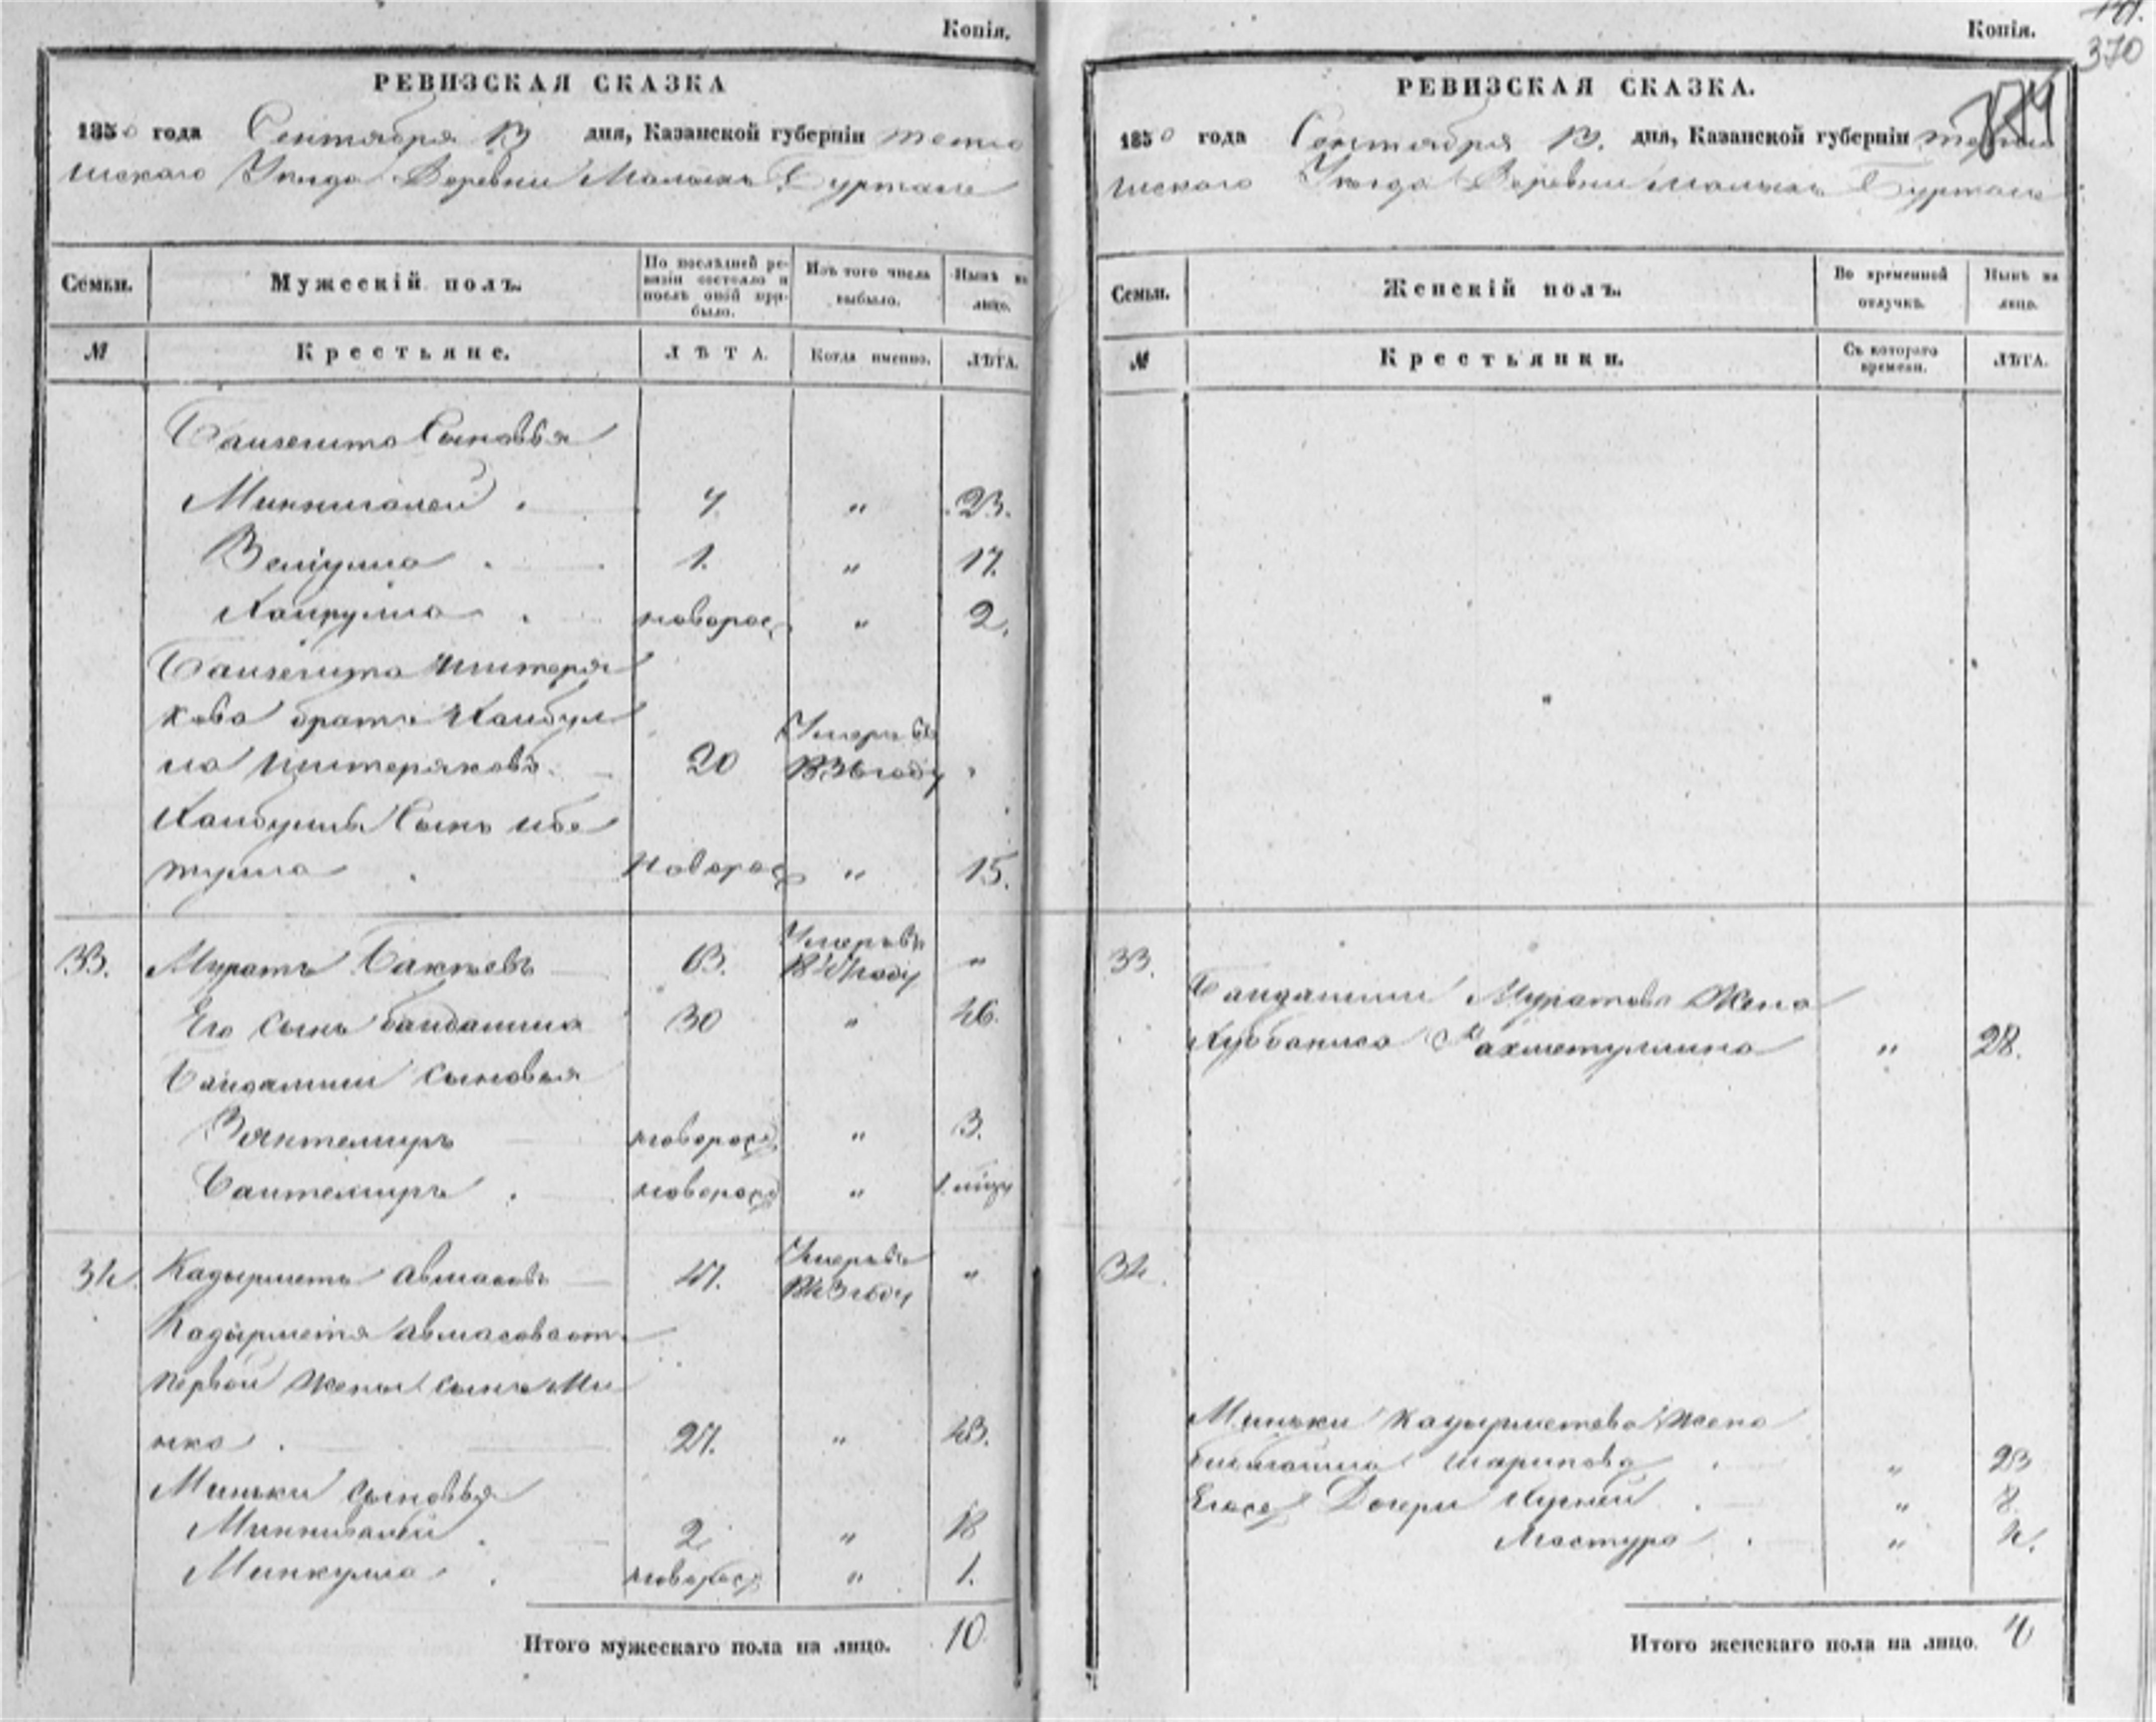 Копія.
РЕВИЗСКАЯ СКАЗКА
1850 года Сентября 13 дня, Казанской губерніи Тетю
шскаго Уезда Деревни Малыхъ Буртасъ
Семьи.
Мужескій полъ.
По послѣдней ре-
визіи состояло и
послѣ оной при-
было.
Изъ того числа
выбыло.
Нынѣ на
лицо.
№
Крестьяне.
ЛѢТА.
Когда именно.
ЛѢТА.
Баизегита Сыновья
Миннигалей 7 " 23.
Велiулла 1. " 17.
Хайрулла новорож " 2.
Баизегита
брата Хайбул
ла 20 Умеръ въ
1836 году
Хайбуллы Сынъ Ибе
тулла новорож " 15.
33. Муратъ Бакаевъ 63. Умеръ въ
году "
Его сынъ Байдашша 30 " 46.
Байдашши сыновья
Бяктемиръ новорож " 3.
Баитемиръ новорож " 1.
34. Кадырметь Авмасовъ 47. Умеръ въ
1843 году "
Кадырметя Авмасова от
первой жены сынъ Ми
нка. 27. " 43.
Миньки сыновья
Миннигалей 2 " 18
Минкулла новорож " 1.
Итого мужескаго пола на лицо. 10
Копія.
370
РЕВИЗСКАЯ СКАЗКА.
1850 года Сентября 13. дня, Казанской губерніи Тетю
шскаго Уезда Деревни Малыхъ Буртасъ
Семьи.
Женскій полъ.
Во временной
отлучкѣ.
Нынѣ на
лицо.
№
Крестьянки.
Съ котораго
времени.
ЛѢТА.
33.
Байдашши Муратова Жена
Курбаниса Рахметуллина " 28.
34.
Миньки Кадырметева жена
Шарипова " 23
Дочери " 8.
Мастура " 4.
Итого женскаго пола на лицо. 4